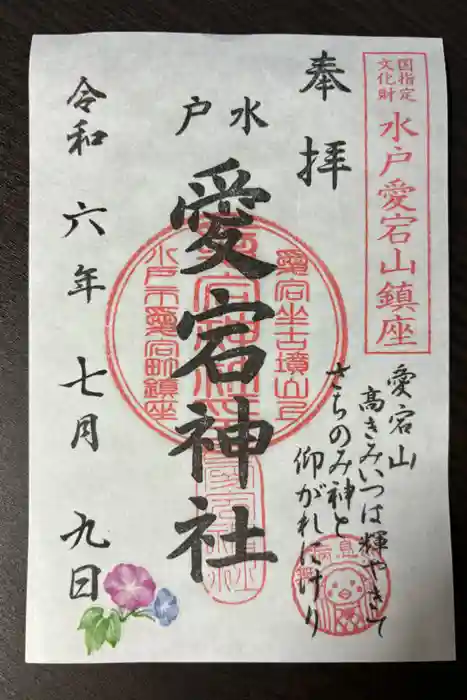 国指定
文化財
水戸愛宕山鎮座
奉拝
愛宕山
高きみいつは輝やきて
さちのみ神と
仰がれにけり
水戸
愛宕神社
愛宕坐古墳山上
水戸市愛宕町鎮座
令和六年七月九日